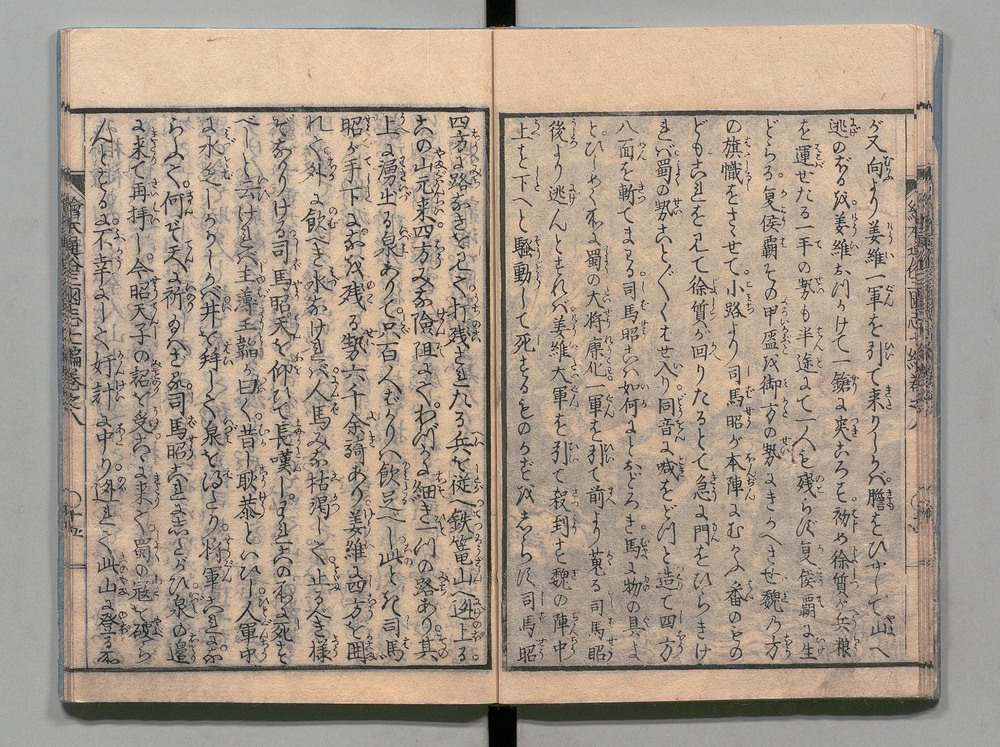 が又向より姜維一軍を引て来りしかバ膽をひやして山へ
逃のぼる姜維おつかけて一鎗に突ころせ初め徐質が兵粮
を運せたる一手の勢も半途にて一人も残らず夏侯覇に生
どらる夏侯覇その甲盔を御方の勢にきかへさせ魏の方
の旗幟をささせて小路より司馬昭が本陣にむかふ番のもの
どもこれを見て徐質が回りたるとて急に門をひらきけ
れバ蜀の勢ことごとくはせ入り同音に喊をどつと造て四方
八面を斬てまはる司馬昭こハ如何にとおどろき馬に物の具よ
とひしめく処に蜀の大将廖化一軍を引て前より蒐る司馬昭
後より逃んとすれバ姜維大軍を引て殺到す魏の陣中
上を下へと騒動して死するものかずを志らず司馬昭
四方に路なきを見て打残されたる兵を従へ鉄篭山へ逃上る
この山元来四方みな険阻にてわづかに細き一つの路あり其
上に湧出る泉ありて只百人ばかりハ飲足べし此とき司馬
昭が手下になほ残る勢六千余騎あり姜維に四方を囲
れて外に飲べき水なけれバ人馬みな枯渇して止るべき様
ぞなかりける司馬昭天を仰いで長嘆しわれこの処に死す
べしと云けれバ主薄王韜が曰く昔し耿恭といひし人軍中
に水乏しかりしかバ井を拜して泉を得たり将軍ハなふ
らく何ぞ天に祈りたまハざる司馬昭これに志たがひ泉の邉
に来て再拜し今昭天子の詔を受ここに来て蜀の寇を破ら
んとするに不幸にして奸計に中り逃れて此山に登る若
繪本通俗三國志七編巻之八